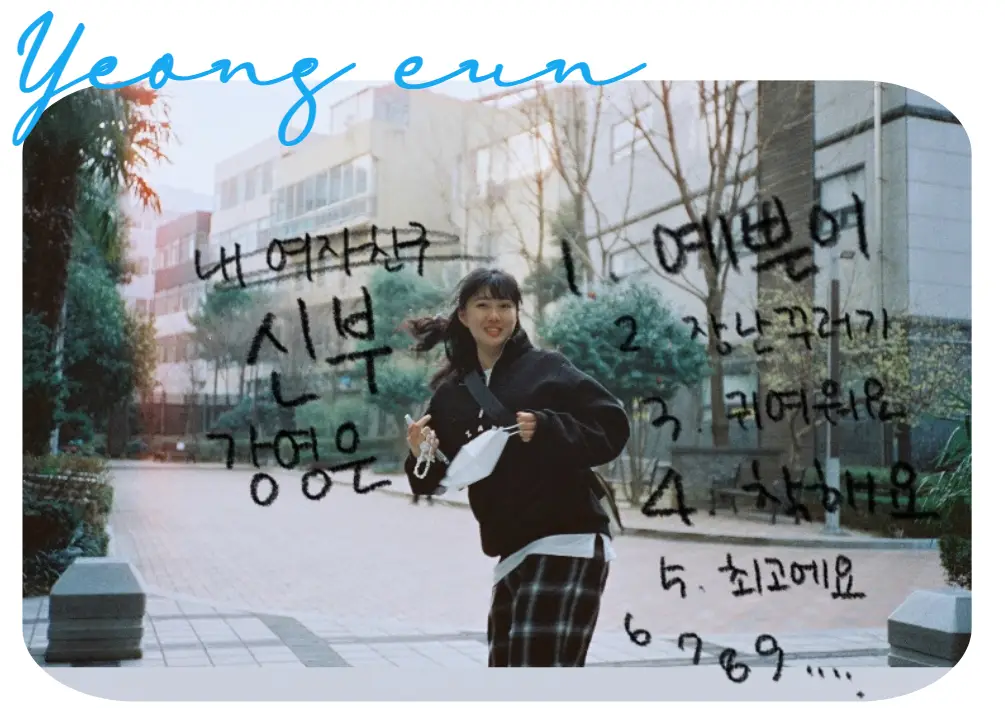 Yeong eun
내 여자친구
신부
강영은
1. 예쁜어
2 장난꾸러기
3. 귀여워요
4. 착해요
5. 최고에요
6 7 8 9 .....